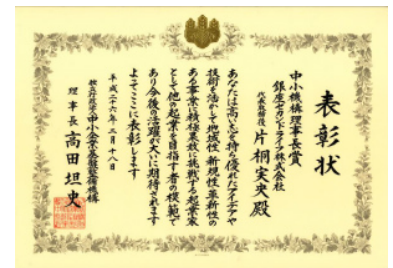 表彰状
中小機構理事長賞
銀座セカンドライフ株式会社
代表取締役 片桐実央殿
あなたは高い志を持ち優れたアイデアや
技術を活かして地域性 新規性 革新性の
ある事業に積極果敢に挑戦する起業家
として他の起業を目指す者の模範で
あり今後の活躍が大いに期待されます
よってここに表彰します
平成二十六年三月十八日
独立行政法人中小企業基盤整備機構
理事長 高田坦史